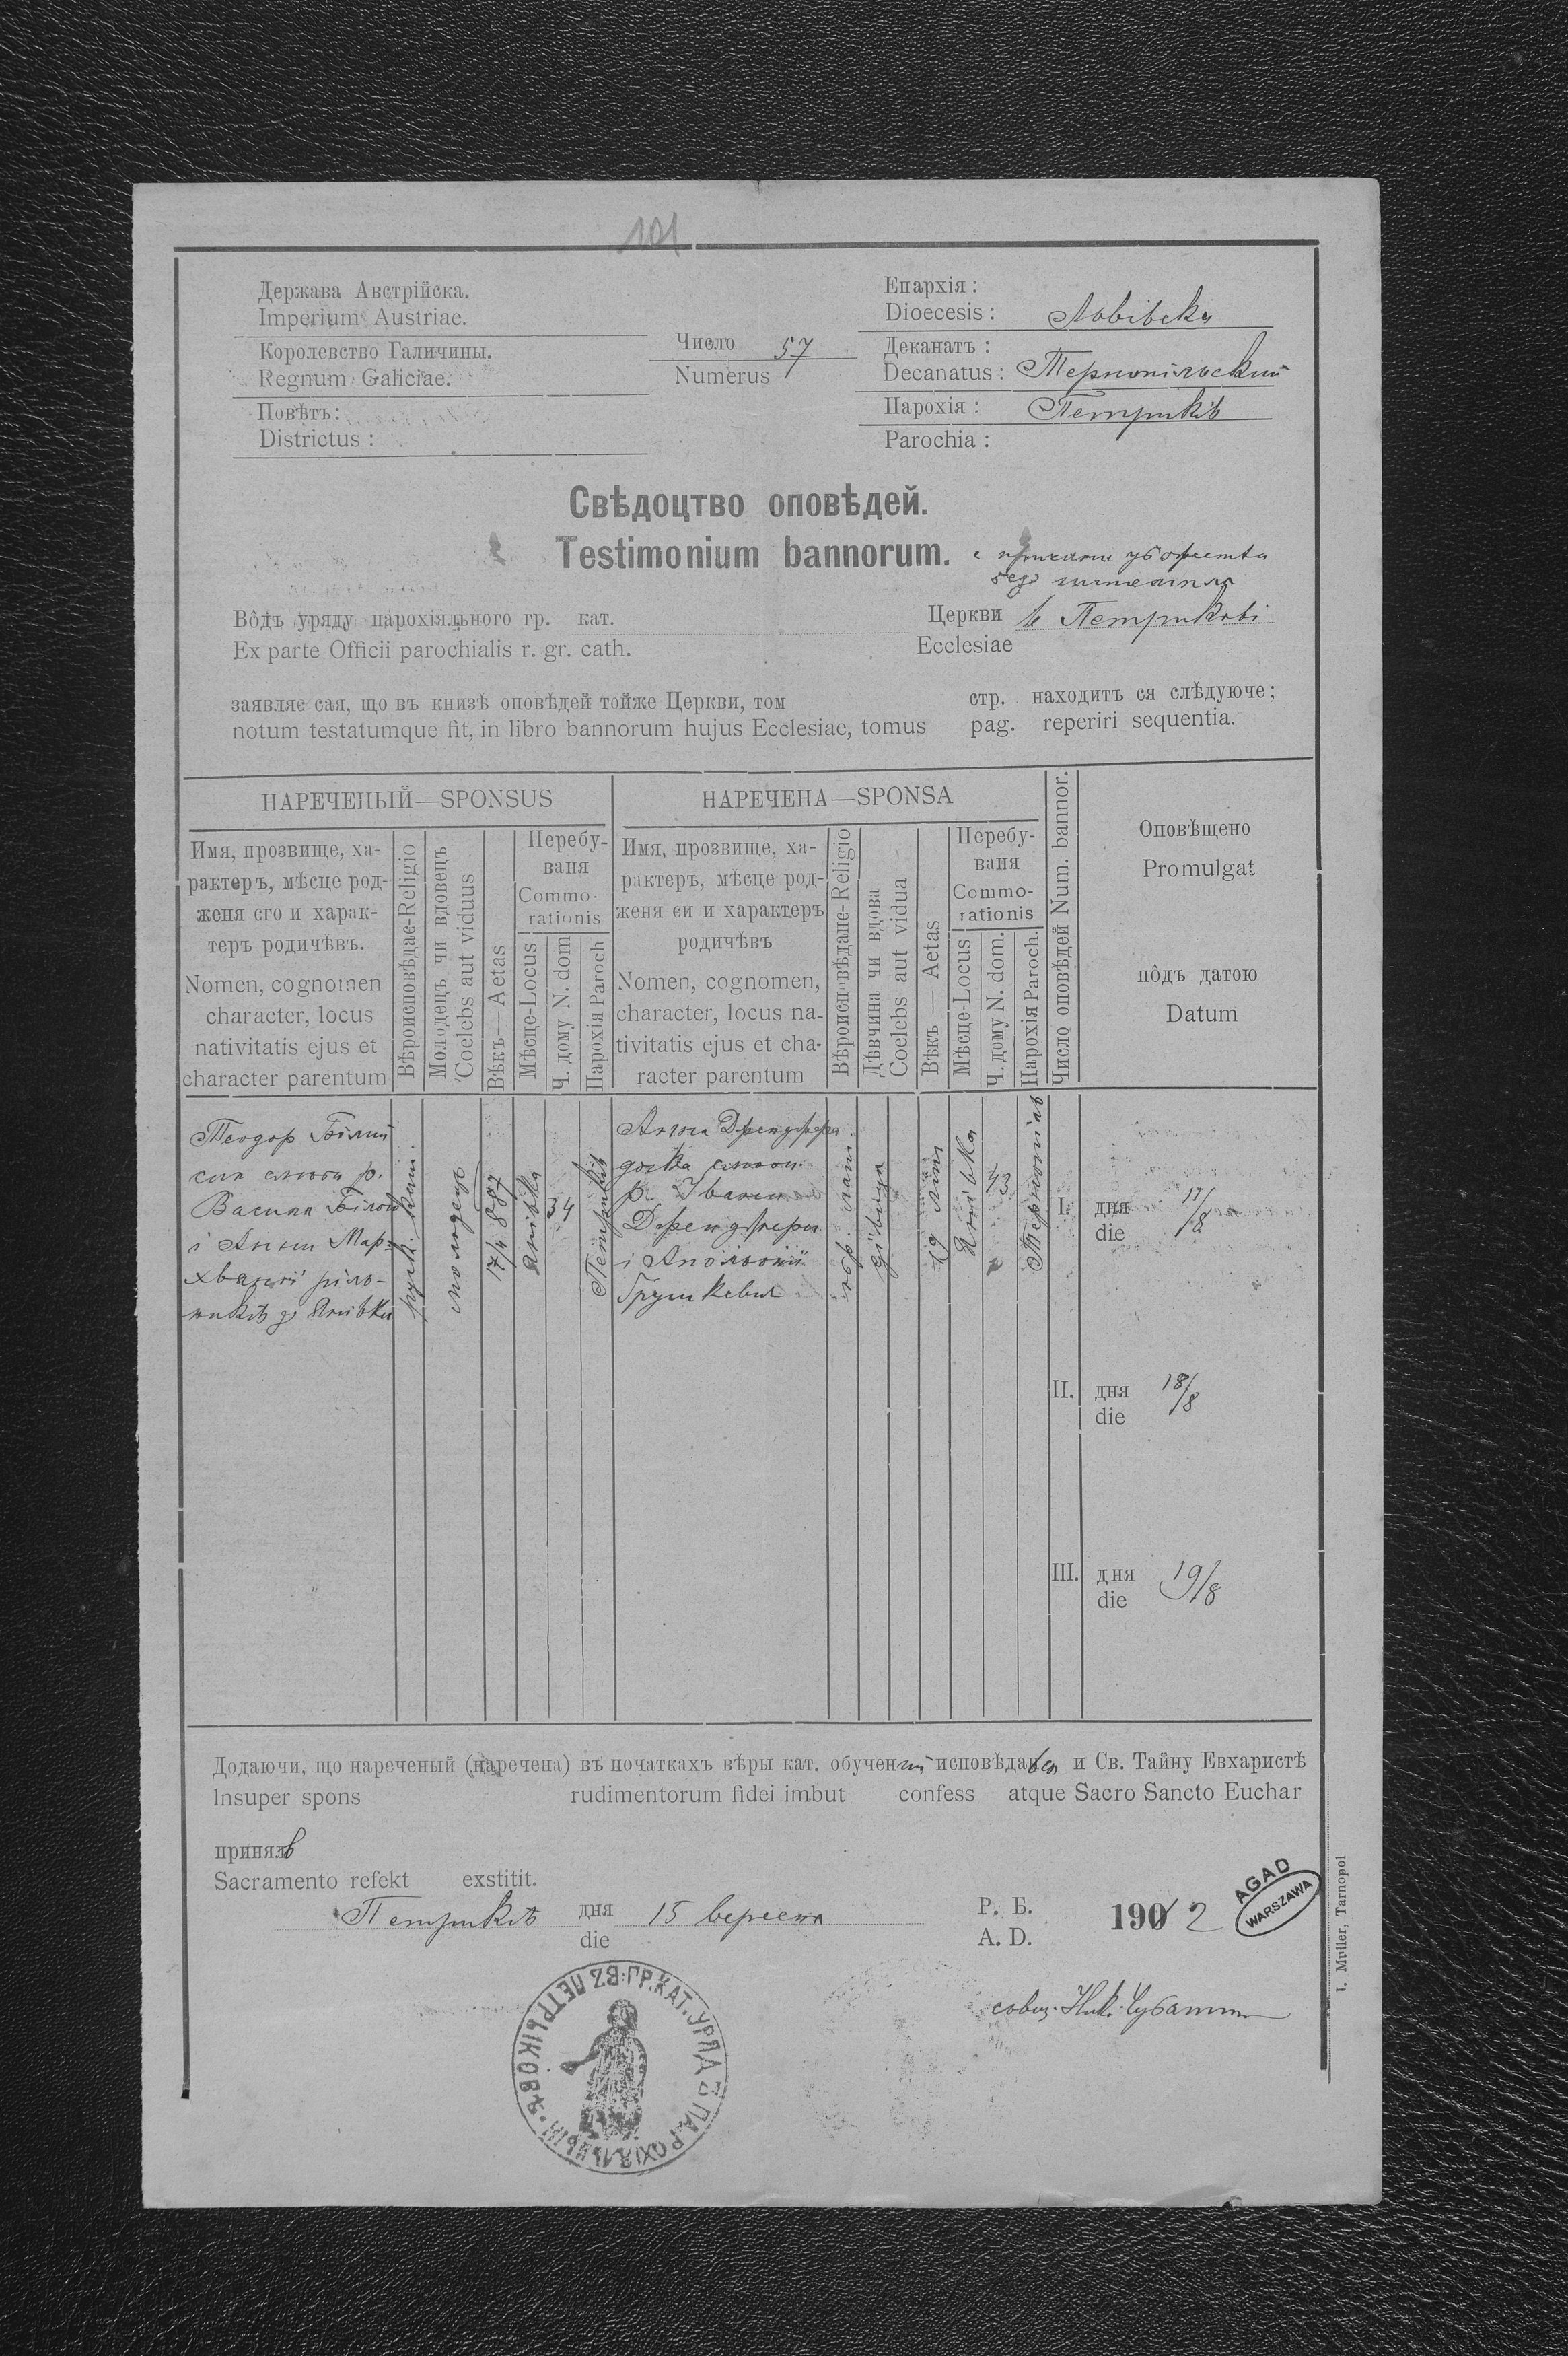 101
Держава Австрійска.
Imperium Austriae.
Королевство Галичины.
Regnum Galiciae.
Повѣтъ:
Districtus :
Число 57
Numerus
Епархія :
Dioecesis : Львівска
Деканатъ :
Decanatus : Тернопільский
Парохія : Петриків
Parochia :
Свѣдоцтво оповѣдей.
Testimonium bannorum.
з причини убожества
без штемпля
Вôдъ уряду парохіяльного гр. кат. Церкви в Петрикові
Ex parte Officii parochialis r. gr. cath. Ecclesiae
заявляє сая, що въ книзѣ оповѣдей тойже Церкви, том стр. находитъ ся слѣдуюче;
notum testatumque fit, in libro bannorum hujus Ecclesiae, tomus pag. reperiri sequentia.
НАРЕЧЕНЫЙ—SPONSUS
Имя, прозвище, ха-
рактеръ, мѣсце род-
женя єго и харак-
теръ родичѣвъ.
Nomen, cognomen
character, locus
nativitatis ejus et
character parentum
Вѣроисповѣдае-Religio
Молодецъ чи вдовецъ
Coelebs aut viduus
Вѣкъ — Aetas
Перебу-
ваня
Commo-
rationis
Мѣсце-Locus
Ч. дому N. dom
Парохія Paroch
НАРЕЧЕНА—SPONSA
Имя, прозвище, ха-
рактеръ, мѣсце род-
женя єи и характеръ
родичѣвъ
Nomen, cognomen,
character, locus na-
tivitatis ejus et cha-
racter parentum
Вѣроисповѣдане-Religio
Дѣвчина чи вдова
Coelebs aut vidua
Вѣкъ — Aetas
Перебу-
ваня
Commo-
rationis
Мѣсце-Locus
Ч. дому N. dom.
Парохія Paroch.
Число оповѣдей Num. bannor.
Оповѣщено
Promulgat
пôдъ датою
Datum
Теодор Білий
син
Василя Білого
і Анни Мар-
ників з Янівки
молодець
17/4 887
Янівка
34
Петриків
Анна
дочка
р. Івана
і Апольонії
Грушкевич
19 літ
Янівка
43
Тернопіль
I. дня 17/8
die
II. дня 18/8
die
III. дня 19/8
die
Додаючи, що нареченый (наречена) въ початкахъ вѣры кат. обучений исповѣдався и Св. Тайну Евхаристѣ
Insuper spons rudimentorum fidei imbut confess atque Sacro Sancto Euchar
принялъ
Sacramento refekt exstitit.
Петриків дня 15 вересня Р. Б. 190 2
die A. D.
AGAD
WARSZAWA
ГР.КАТ.УРЯД ПАРОХІЯЛЬНЫЙ ВЪ ПЕТРЫКОВѢ
I. Muller, Tarnopol